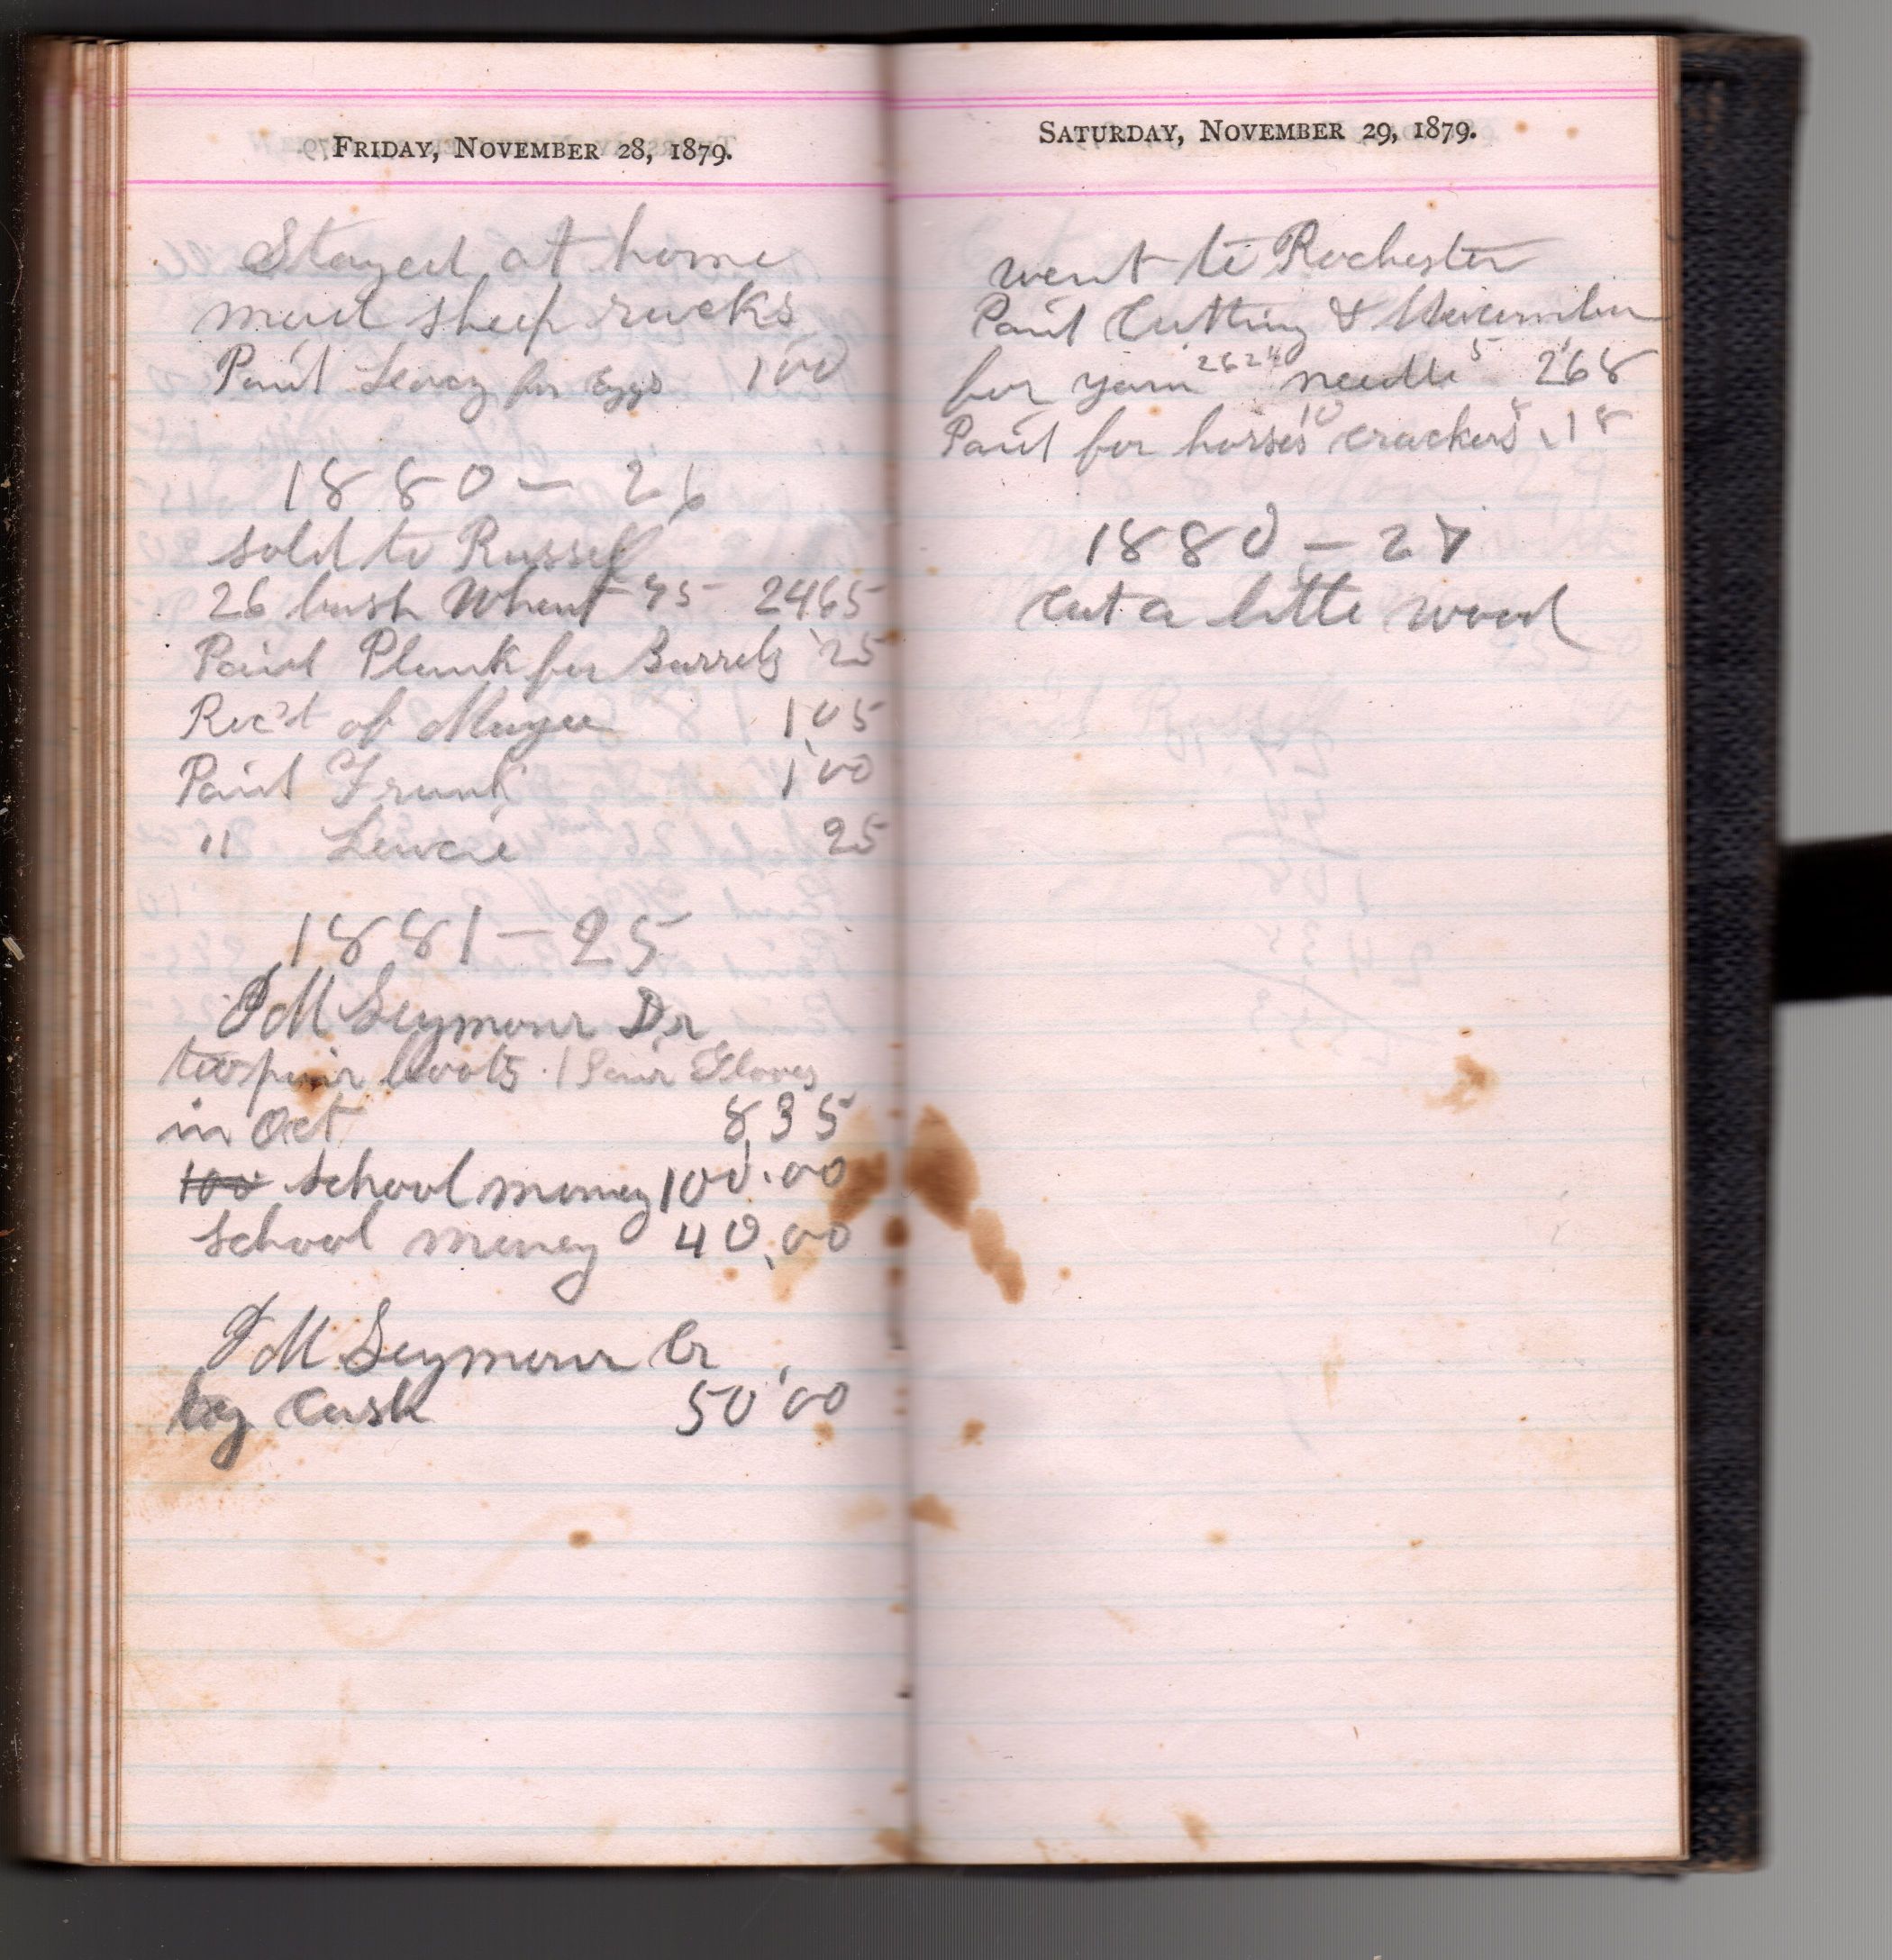 FRIDAY, NOVEMBER 28, 1879.
Stayed at home
mad sheep racks
Paid Leroy for Eggs 100
1880 — 26
sold to Russell
26 bush Wheat 95 2465
Paid Plank for Barrels 25
Rec't of Magee 1,05
Paid Frank 1'00
" Lewie 25
1881 — 25
M Seymour Dr
two pair boots 1 Pair Gloves
in Oct 8,35
100 school money 100.00
school money 40,00
M Seymour Cr
by Cash 50'00
SATURDAY, NOVEMBER 29, 1879.
went to Rochester
Paid Cutting &
for yarn 262 needle 5 268
Paid for horses 10 crackers 8 .18
1880 — 27
cut a little wood